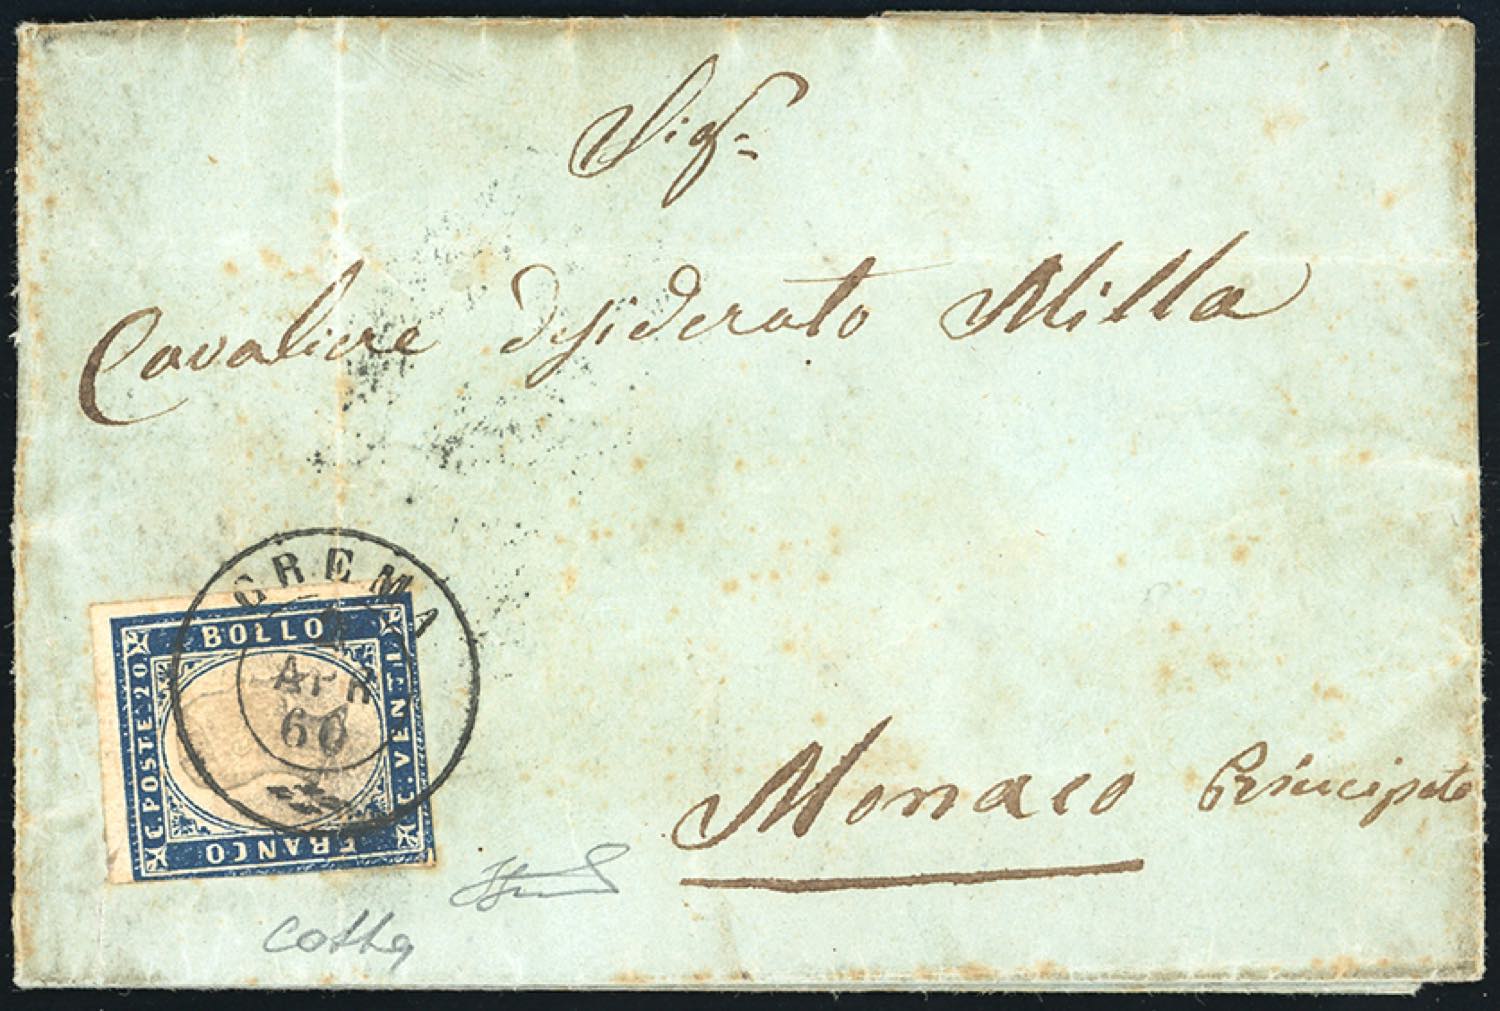 Sig.
Cavaliere Desiderato Milla
CREMA
APR
60
BOLLO
C. POSTE 20
C. VENTI
FRANCO
Monaco Principato